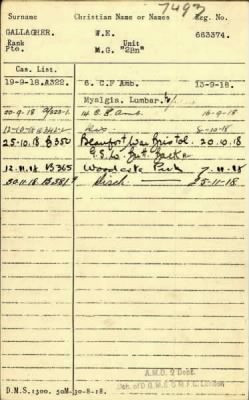 7493
Surname Christian Name or Names Reg. No.
GALLAGHER. W.E. 663374.
Rank Unit
Pte. M.G. "2Bn"
Cas. List.
19-9-18.A322. 6. C.F Amb. 13-9-18.
Myalgia. Lumbar.
20-9-18 16-9-18
Do
25.10.18 B350 Beaufort War Bristol. 20.10.18
G.S.W.
12.11.18 B365 Woodcote Park 7.11.18
30-11-18 B381 Disch. 25-11-18.
A.M.D. 2 Dept.
London
D.M.S. 1300. 50M-30-8-18.